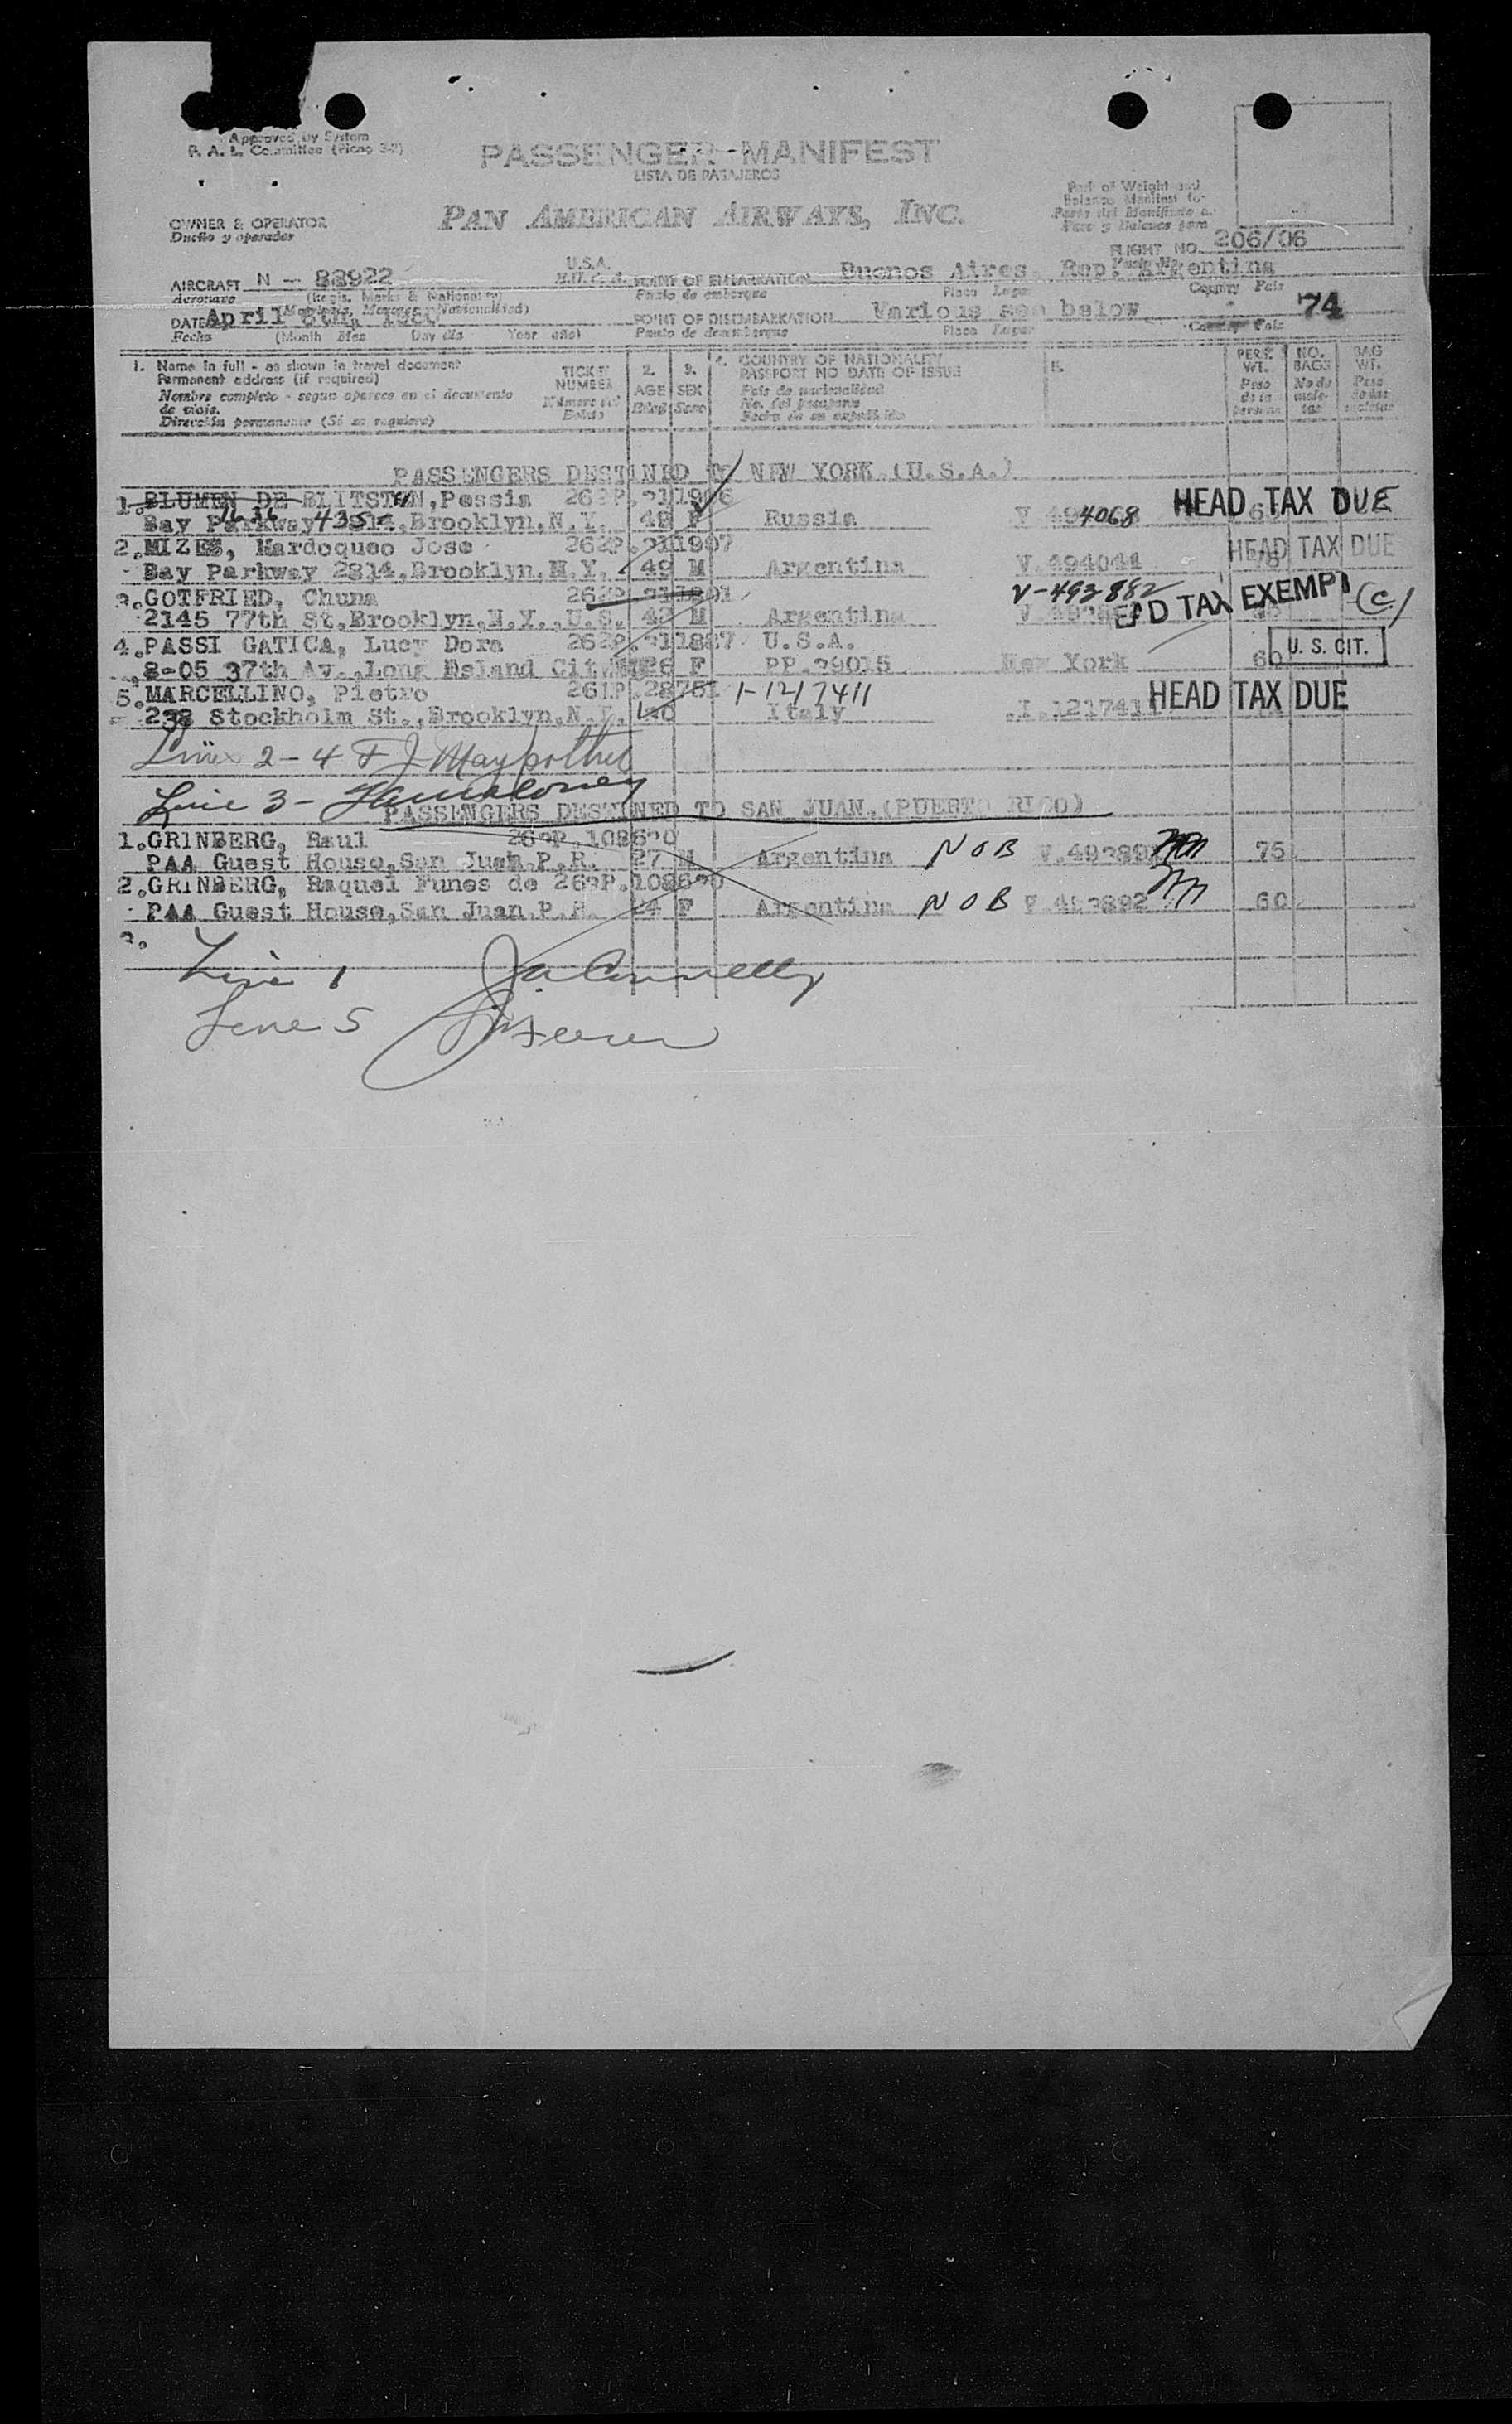 Approved by System
P. A. L. Committee
PASSENGER MANIFEST
LISTA DE PASAJEROS
PAN AMERICAN AIRWAYS, INC.
Part of Weight and
Balance Manifest for
Parte del Manifiesto de
Peso y Balance para
OWNER & OPERATOR
Dueño y operador
FLIGHT NO. 206/06
AIRCRAFT N - 88922 U.S.A. POINT OF EMBARKATION Buenos Aires, Rep. Argentina
Aeronave (Regis. Marks & Nationality) Punto de embarque Place Lugar Country País
DATE April POINT OF DISEMBARKATION Various see below 74
Fecha (Month Mes Day día Year año) Punto de desembarque Place Lugar Country País
1. Name in full - as shown in travel document TICKET NUMBER 2. AGE 3. SEX 4. COUNTRY OF NATIONALITY PASSPORT NO DATE OF ISSUE 5. PERS. WT. NO. BAGS BAG WT.
Permanent address (if required)
Nombre completo - segun aparece en el documento de viaje.
Dirección permanente (Si se requiere)
PASSENGERS DESTINED TO NEW YORK.(U.S.A.)
1. BLUMEN DE BLITSTEIN, Pessia 262P.211906 HEAD TAX DUE
Bay Parkway Brooklyn,N.Y. 48 F Russia V.494068
2. MIZES, Mardoqueo Jose 262P.211907 HEAD TAX DUE
Bay Parkway 2314,Brooklyn,N.Y. 49 M Argentina V.494044
3. GOTFRIED, Chuna V-493882 HEAD TAX EXEMPT (C)
2145 77th St,Brooklyn,N.Y.,U.S. 42 M Argentina
4. PASSI GATICA, Lucy Dora 262P.211887 U.S.A. U. S. CIT.
8-05 37th Av.,Long Island City 26 F PP.29015 New York 60
5. MARCELLINO, Pietro 261P.28751 1-1217411 HEAD TAX DUE
238 Stockholm St.,Brooklyn,N.Y. Italy .I.1217411
Line 2-4
Line 3 -
PASSENGERS DESTINED TO SAN JUAN.(PUERTO RICO)
1. GRINBERG, Raul 262P.108620
PAA Guest House,San Juan.P.R. 27 M Argentina NOB 75
2. GRINBERG, Raquel Funes de 262P.108620
PAA Guest House,San Juan.P.R. 24 F Argentina NOB V.493892 60
3.
Line 1 J.A. Connelly
Line 5